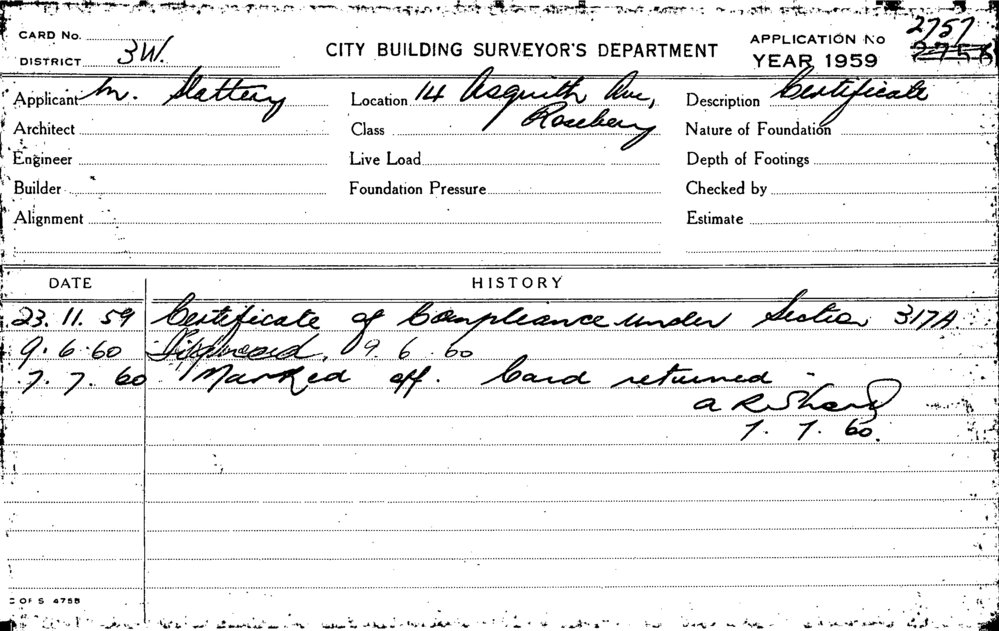 CARD No.
DISTRICT 3W.
CITY BUILDING SURVEYOR'S DEPARTMENT
APPLICATION No 2757 2758
YEAR 1959
Applicant M. Slattery Location 14 Asquith Ave, Description Certificate
Architect Class Rosebery Nature of Foundation
Engineer Live Load Depth of Footings
Builder Foundation Pressure Checked by
Alignment Estimate
DATE HISTORY
23. 11. 59 Certificate of Compliance under Section 317A
9. 6. 60 Approved, 9 6 60
7. 7. 60 Marked off. Card returned
7. 7. 60.
C OF S 4758